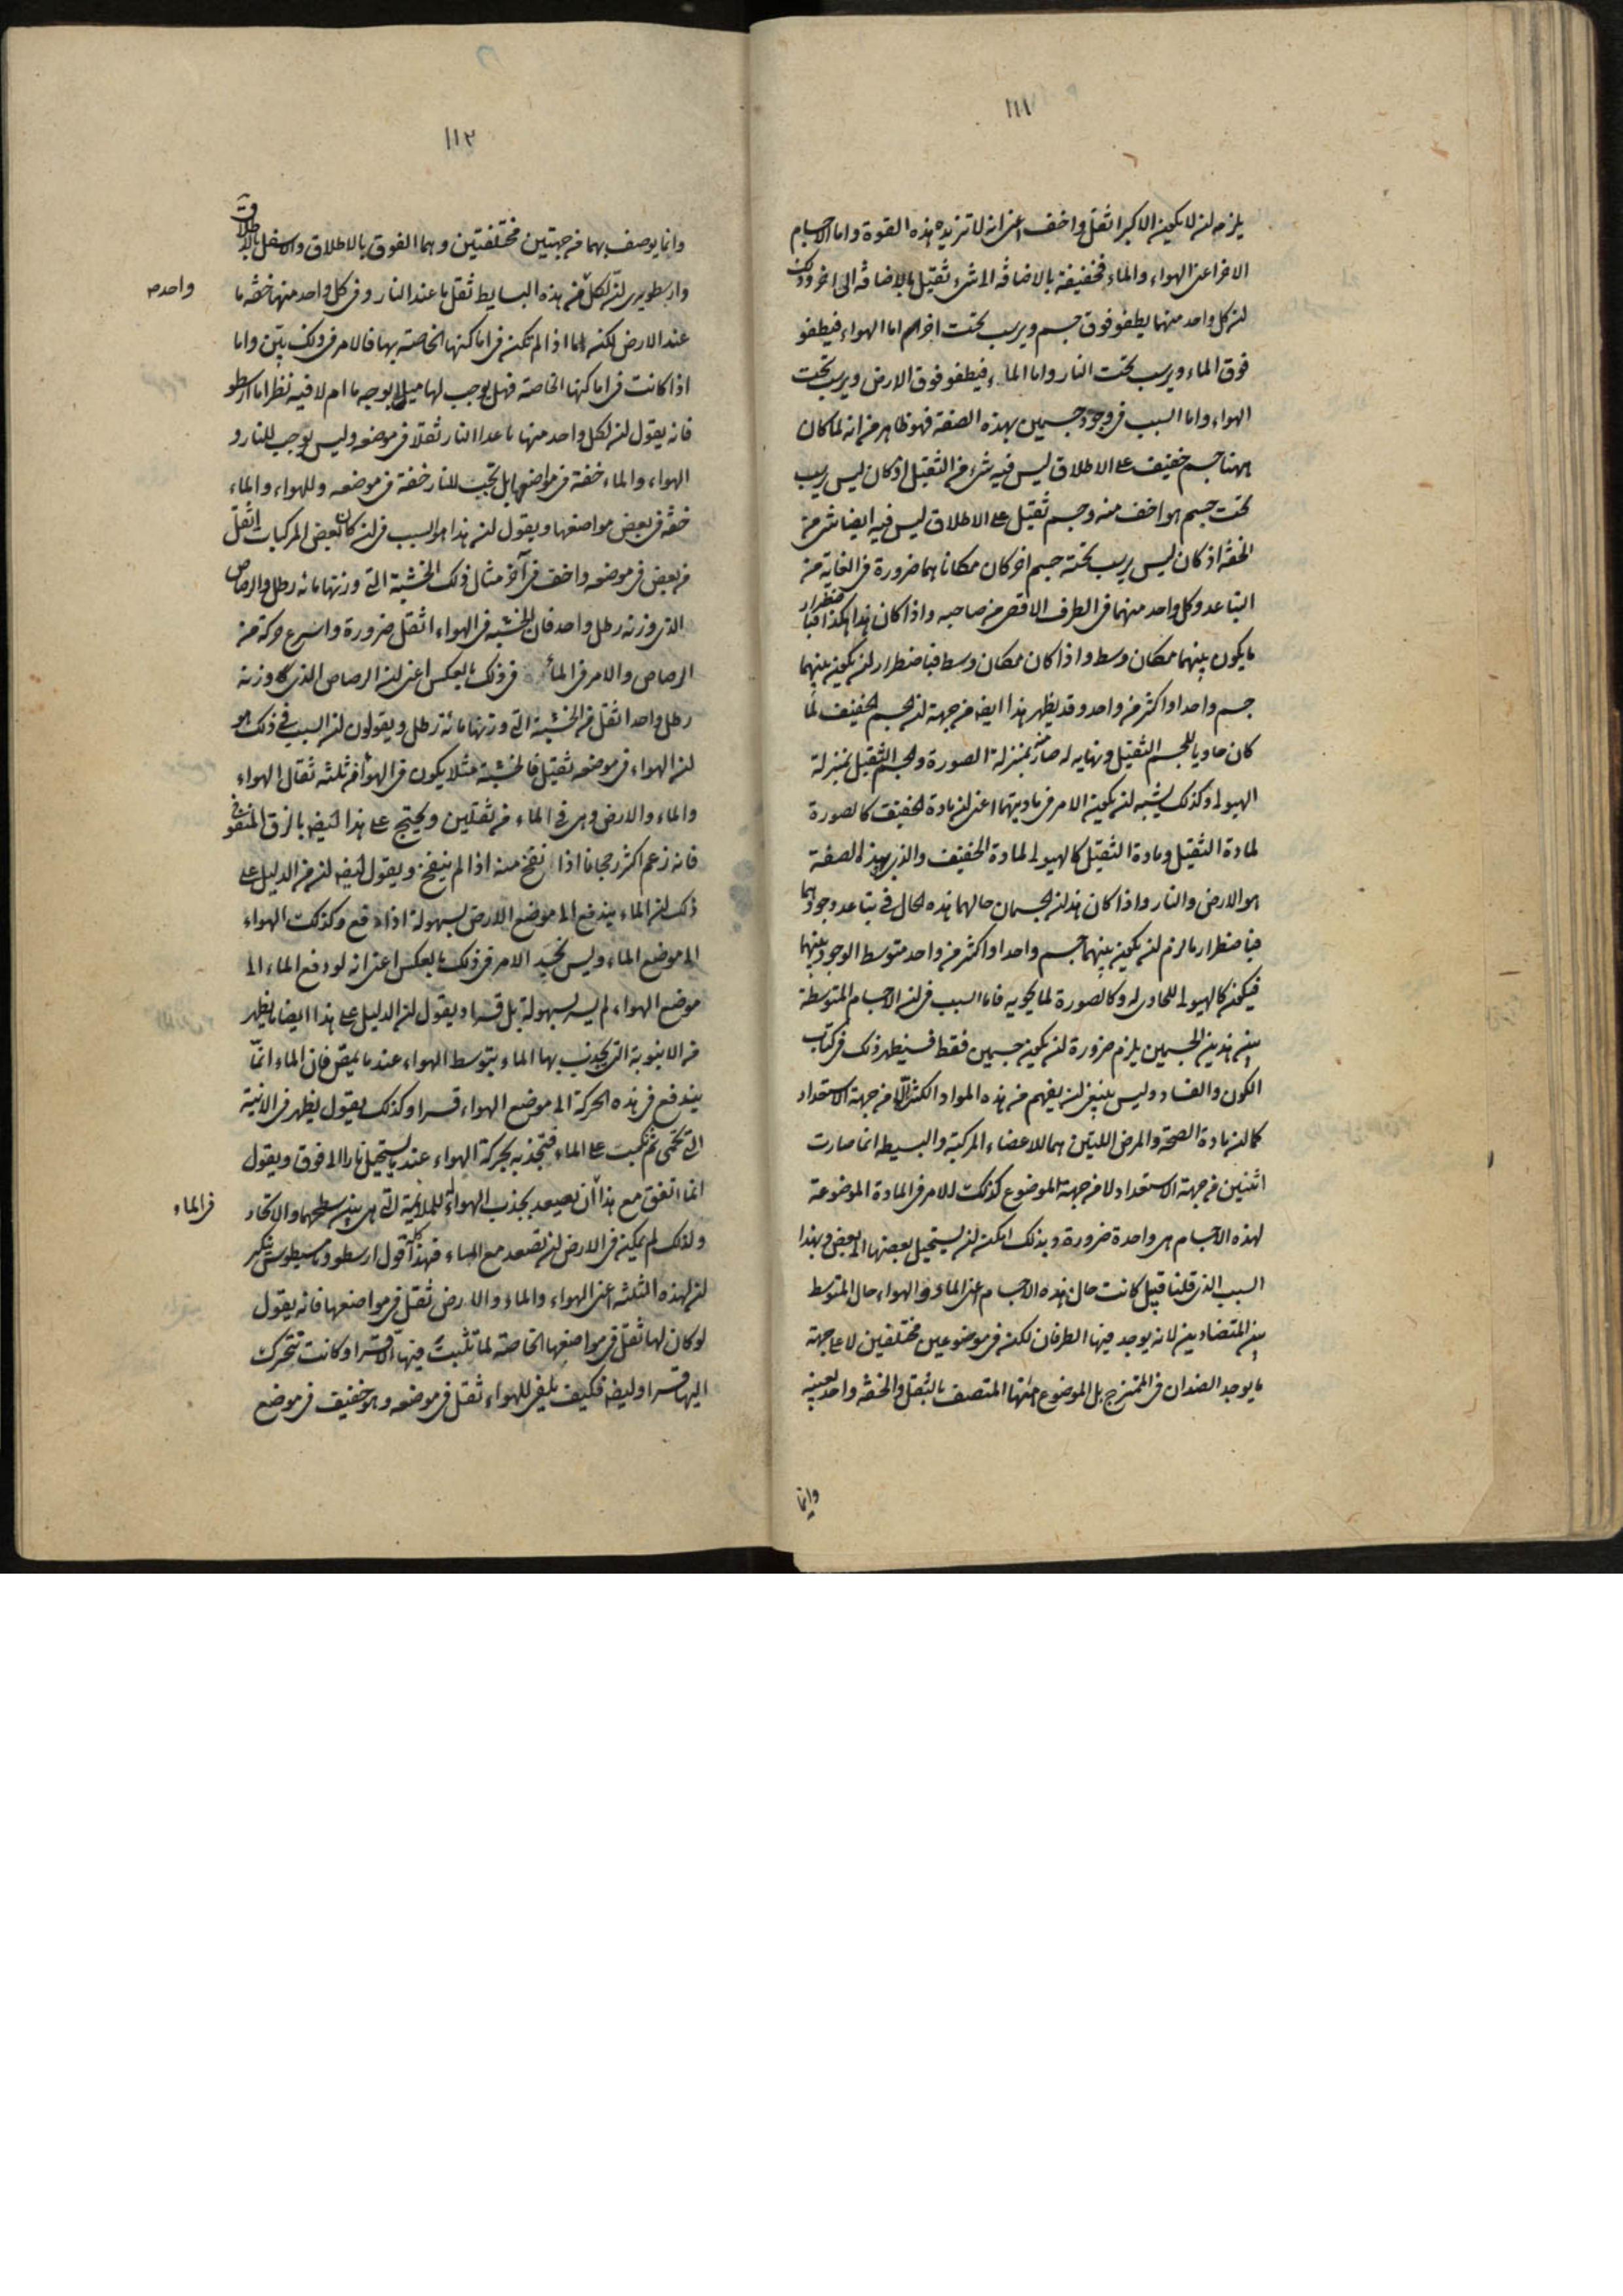 ١١١
يلزمه ان لا يكون الاكبر اثقل واخف اعنى انه لا تزيده هذه القوة واما الاجسام
الاخر اعنى الهواء والماء فخفيفة بالاضافة الى شىء ثقيل بالاضافة الى اخر وذلك
ان كل واحد منهما يطفو فوق جسم ويرسب تحت اخر اما الهواء فيطفو
فوق الماء ويرسب تحت النار واما الماء فيطفو فوق الارض ويرسب تحت
الهواء واما السبب فى وجود جسمين بهذه الصفة فهو ظاهر من انه لما كان
ههنا جسم خفيف على الاطلاق ليس فيه شىء من الثقيل اذ كان ليس يرسب
تحت جسم هو اخف منه وجسم ثقيل على الاطلاق ليس فيه ايضا شىء من
الخفة اذ كان ليس يرسب تحته جسم اخر كان مكاناهما ضرورة فى الغاية من
التباعد وكل واحد منهما فى الطرف الاقصى من صاحبه واذا كان هذا هكذا فباضطرار
ما يكون بينهما مكان وسط واذا كان مكان وسط فباضطرار ان يكون بينهما
جسم واحد او اكثر من واحد وقد يظهر هذا ايضا من جهة ان الجسم الخفيف لما
كان حاويا للجسم الثقيل ونهاية له صار منه بمنزلة الصورة والجسم الثقيل بمنزلة
الهيولى وكذلك يشبه ان يكون الامر فى مادتيهما اعنى ان مادة الخفيف كالصورة
لمادة الثقيل ومادة الثقيل كالهيولى لمادة الخفيف والذى بهذه الصفة
هو الارض والنار واذا كان هذان الجسمان حالهما هذه الحال فى تباعد وجودهما
فباضطرار ما لزم ان يكون بينهما جسم واحد او اكثر من واحد متوسط الوجود بينهما
فيكون كالهيولى للحاوى له وكالصورة لما يحويه فاما السبب فى ان الاجسام المتوسطة
بين هذين الجسمين يلزم ضرورة ان يكون جسمين فقط فسيظهر ذلك فى كتاب
الكون والفساد وليس ينبغى ان يفهم من هذه المواد الكثرة الا من جهة الاستعداد
كما ان مادة الصحة والمرض اللتين هما للاعضاء المركبة والبسيطة انما صارت
اثنين من جهة الاستعداد لا من جهة الموضوع كذلك الامر فى المادة الموضوعة
لهذه الاجسام هى واحدة ضرورة وبذلك امكن ان يستحيل بعضها الى بعض وبهذا
السبب الذى قلنا قيل كانت حال هذه الاجسام اعنى الماء والهواء حال المتوسط
بين المتضادين لانه يوجد فيها الطرفان لكن فى موضوعين مختلفين لا على جهة
ما يوجد الضدان فى الممتزج بل الموضوع ههنا المتصف بالثقل والخفة واحد بعينه
وانما
١١٢
وانما يوصف بهما من جهتين مختلفتين وهما الفوق بالاطلاق والاسفل بالاطلاق
وارسطو يرى ان لكل من هذه البسايط ثقل ما عند النار وفى كل واحد منها خفة ما
واحدة
عند الارض لكن اما اذا لم تكن فى اماكنها الخاصة بها فالامر فى ذلك بين واما
اذا كانت فى اماكنها الخاصة فهل يوجب لها ميلا بوجه ما ام لا فيه نظر اما ارسطو
فانه يقول ان لكل واحد منها ما عدا النار ثقلا فى موضعه وليس يوجب للنار و
الهواء والماء خفة فى مواضعها بل تجب للنار خفة فى موضعه وللهواء والماء
خفة فى بعض مواضعها ويقول ان هذا هو السبب فى ان كان بعض المركبات اثقل
من بعض فى موضعه واخف فى آخر مثال ذلك الخشبة التى وزنها مائة رطل والرصاص
الذى وزنه رطل واحد فان الخشبة فى الهواء اثقل ضرورة واسرع حركة من
الرصاص والامر فى الماء فى ذلك بالعكس اعنى ان الرصاص الذى وزنه
رطل واحد اثقل من الخشبة التى وزنها مائة رطل ويقولون ان السبب فى ذلك هو
ان الهواء فى موضعه ثقيل فالخشبة مثلا يكون فى الهواء من ثلثة ثقال الهواء
والماء والارض وهى فى الماء من ثقلين ويحتج على هذا ايضا بالزق المنفوخ
فانه زعم اكثر رجحانا اذا نفخ منه اذا لم ينفخ ويقول ايضا ان من الدليل على
ذلك ان الماء يندفع الى موضع الارض بسهولة اذا دفع وكذلك الهواء
الى موضع الماء وليس نجد الامر فى ذلك بالعكس اعنى انه لو دفع الماء الى
موضع الهواء لم يسر بسهولة بل قسرا ويقول ان الدليل على هذا ايضا ما يظهر
من الانبوبة التى يجذب بها الماء بتوسط الهواء عندما يمص فان الماء انما
يندفع فى هذه الحركة الى موضع الهواء قسرا وكذلك يقول يظهر فى الانية
التى تحمى ثم تكب على الماء فتجذبه بحركة الهواء عندما يستحيل نارا الى فوق ويقول
انما اتفق مع هذا ان يصعد بجذب الهواء للملائمة التى هى بين سطحهما والاتحاد
فى الماء
ولذلك لم يمكن فى الارض ان تصعد مع الماء فهذا كله قول ارسطو وثامسطيوس ينكر
ان لهذه الثلثة اعنى الهواء والماء والارض ثقل فى مواضعها فانه يقول
لو كان لها ثقل فى مواضعها الخاصة لما تثبت فيها الا قسرا وكانت تتحرك
اليها قسرا وايضا فكيف يلفى للهواء ثقل فى موضعه وهو خفيف فى موضع